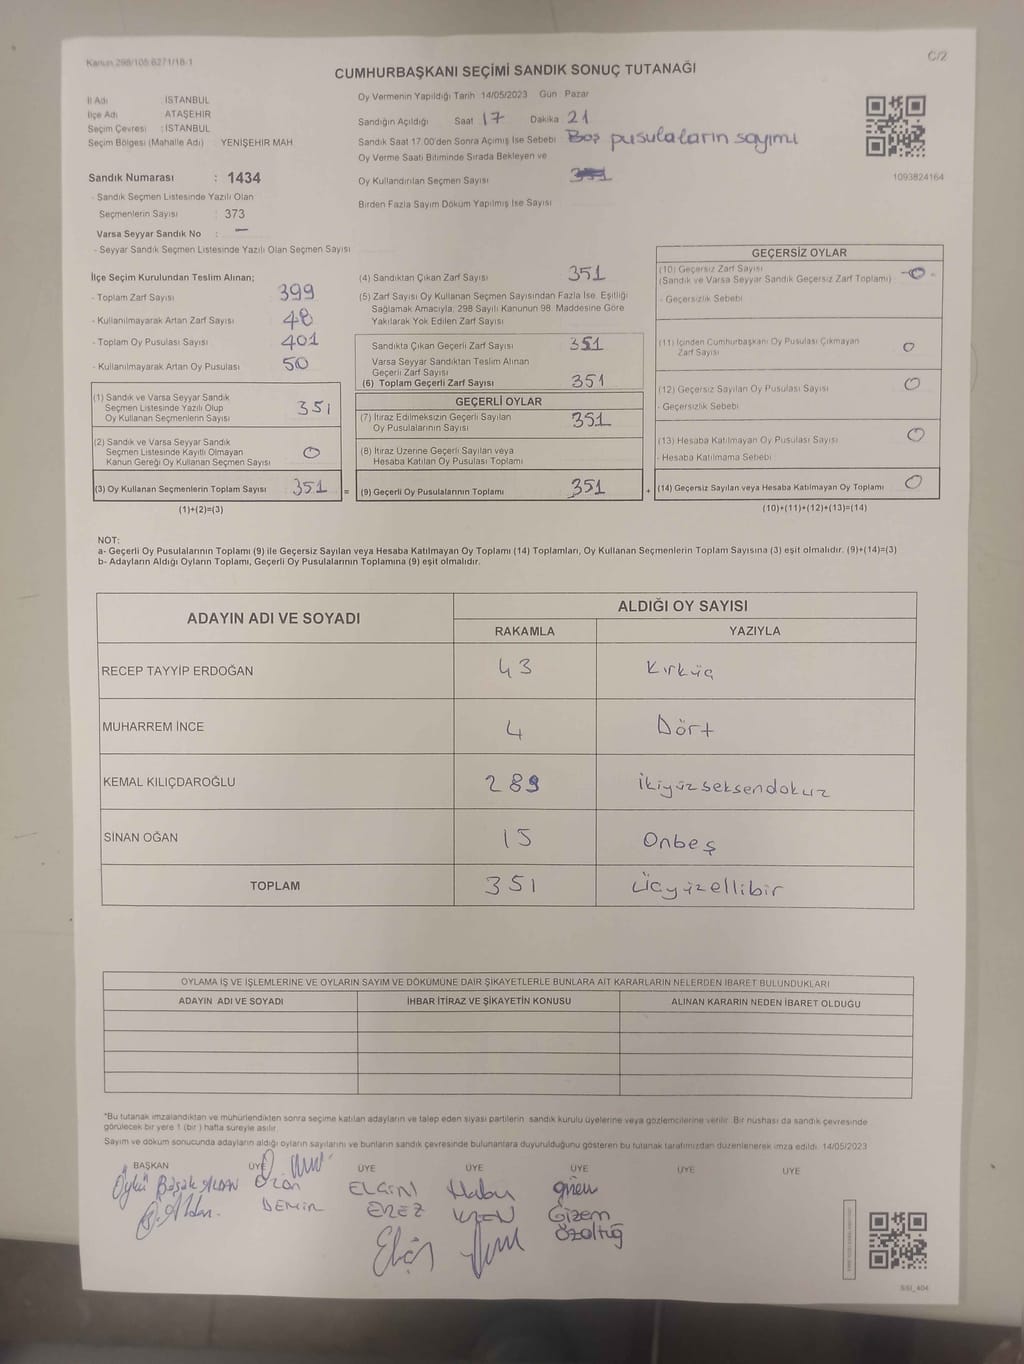 Kanun 298/105 6271/18-1
C/2
CUMHURBAŞKANI SEÇİMİ SANDIK SONUÇ TUTANAĞI
İl Adı : İSTANBUL
İlçe Adı : ATAŞEHİR
Seçim Çevresi : İSTANBUL
Seçim Bölgesi (Mahalle Adı) YENİŞEHİR MAH.
Sandık Numarası : 1434
- Sandık Seçmen Listesinde Yazılı Olan
Seçmenlerin Sayısı : 373
Varsa Seyyar Sandık No : —
- Seyyar Sandık Seçmen Listesinde Yazılı Olan Seçmen Sayısı
Oy Vermenin Yapıldığı Tarih 14/05/2023 Gün Pazar
Sandığın Açıldığı Saat 17 Dakika 21
Sandık Saat 17.00'den Sonra Açımış İse Sebebi Boş pusulaların sayımı
Oy Verme Saati Bitiminde Sırada Bekleyen ve
Oy Kullandırılan Seçmen Sayısı
Birden Fazla Sayım Döküm Yapılmış İse Sayısı
1093824164
İlçe Seçim Kurulundan Teslim Alınan;
- Toplam Zarf Sayısı 399
- Kullanılmayarak Artan Zarf Sayısı 48
- Toplam Oy Pusulası Sayısı 401
- Kullanılmayarak Artan Oy Pusulası 50
(1) Sandık ve Varsa Seyyar Sandık
Seçmen Listesinde Yazılı Olup
Oy Kullanan Seçmenlerin Sayısı 351
(2) Sandık ve Varsa Seyyar Sandık
Seçmen Listesinde Kayıtlı Olmayan
Kanun Gereği Oy Kullanan Seçmen Sayısı 0
(3) Oy Kullanan Seçmenlerin Toplam Sayısı 351 =
(1)+(2)=(3)
(4) Sandıktan Çıkan Zarf Sayısı 351
(5) Zarf Sayısı Oy Kullanan Seçmen Sayısından Fazla İse, Eşitliği
Sağlamak Amacıyla, 298 Sayılı Kanunun 98. Maddesine Göre
Yakılarak Yok Edilen Zarf Sayısı
Sandıkta Çıkan Geçerli Zarf Sayısı 351
Varsa Seyyar Sandıktan Teslim Alınan
Geçerli Zarf Sayısı
(6) Toplam Geçerli Zarf Sayısı 351
GEÇERLİ OYLAR
(7) İtiraz Edilmeksizin Geçerli Sayılan
Oy Pusulalarının Sayısı 351
(8) İtiraz Üzerine Geçerli Sayılan veya
Hesaba Katılan Oy Pusulası Toplamı
(9) Geçerli Oy Pusulalarının Toplamı 351 +
GEÇERSİZ OYLAR
(10) Geçersiz Zarf Sayısı
(Sandık ve Varsa Seyyar Sandık Geçersiz Zarf Toplamı) -0-
- Geçersizlik Sebebi
(11) İçinden Cumhurbaşkanı Oy Pusulası Çıkmayan
Zarf Sayısı 0
(12) Geçersiz Sayılan Oy Pusulası Sayısı 0
- Geçersizlik Sebebi
(13) Hesaba Katılmayan Oy Pusulası Sayısı 0
- Hesaba Katılmama Sebebi
(14) Geçersiz Sayılan veya Hesaba Katılmayan Oy Toplamı 0
(10)+(11)+(12)+(13)=(14)
NOT:
a- Geçerli Oy Pusulalarının Toplamı (9) ile Geçersiz Sayılan veya Hesaba Katılmayan Oy Toplamı (14) Toplamları, Oy Kullanan Seçmenlerin Toplam Sayısına (3) eşit olmalıdır. (9)+(14)=(3)
b- Adayların Aldığı Oyların Toplamı, Geçerli Oy Pusulalarının Toplamına (9) eşit olmalıdır.
ADAYIN ADI VE SOYADI
ALDIĞI OY SAYISI
RAKAMLA YAZIYLA
RECEP TAYYİP ERDOĞAN 43 Kırküç
MUHARREM İNCE 4 Dört
KEMAL KILIÇDAROĞLU 289 ikiyüzseksendokuz
SİNAN OĞAN 15 Onbeş
TOPLAM 351 üçyüzellibir
OYLAMA İŞ VE İŞLEMLERİNE VE OYLARIN SAYIM VE DÖKÜMÜNE DAİR ŞİKAYETLERLE BUNLARA AİT KARARLARIN NELERDEN İBARET BULUNDUKLARI
ADAYIN ADI VE SOYADI İHBAR İTİRAZ VE ŞİKAYETİN KONUSU ALINAN KARARIN NEDEN İBARET OLDUĞU
*Bu tutanak imzalandıktan ve mühürlendikten sonra seçime katılan adayların ve talep eden siyasi partilerin sandık kurulu üyelerine veya gözlemcilerine verilir. Bir nüshası da sandık çevresinde
görülecek bir yere 1 (bir ) hafta süreyle asılır.
Sayım ve döküm sonucunda adayların aldığı oyların sayılarını ve bunların sandık çevresinde bulunanlara duyurulduğunu gösteren bu tutanak tarafımızdan düzenlenerek imza edildi. 14/05/2023
BAŞKAN ÜYE ÜYE ÜYE ÜYE ÜYE ÜYE
Öykü Başak ALDAN Ozan
DEMİR EREZ Gizem
Özaltuğ
SSI_404